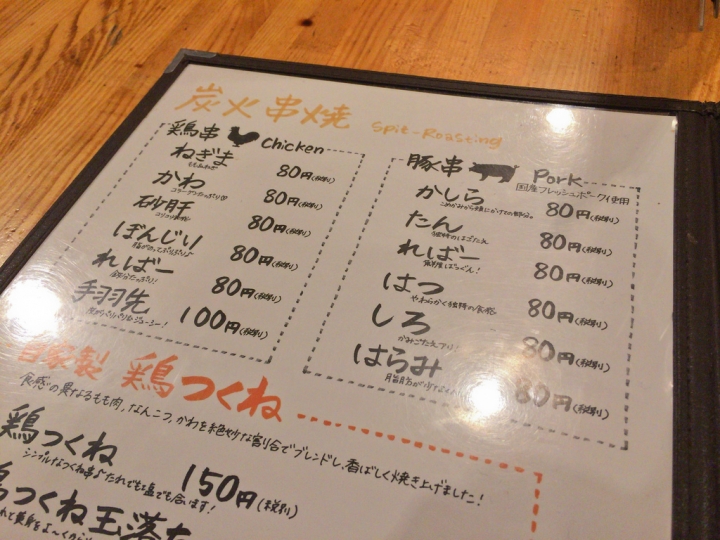 炭火串焼 Spit-Roasting
鶏串 Chicken
ねぎま 80円(税別)
かわ 80円(税別)
砂肝 80円(税別)
ぼんじり 80円(税別)
ればー 80円(税別)
手羽先 100円(税別)
豚串 Pork
国産フレッシュポーク使用
かしら 80円(税別)
たん 80円(税別)
ればー 80円(税別)
はつ 80円(税別)
やわらかく独特の食感
しろ 80円(税別)
はらみ 80円(税別)
自家製 鶏つくね
食感の異なるもも肉,なんこつ,かわを絶妙な割合でブレンドし,香ばしく焼き上げました!
鶏つくね 150円(税別)
シンプルなつくね串♪たれでも塩でも合います!
鶏つくね玉落